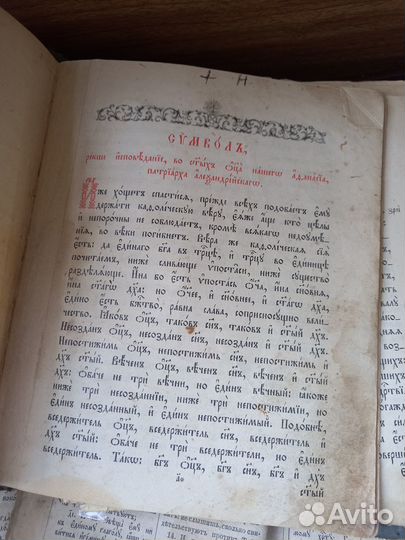 + н
СѴМВО́ЛЪ,
ре́кши и҆сповѣ́данїе, во ст҃ы́хъ ѻ҆ц҃а̀ на́шегѡ а҆ѳана́сїа,
патрїа́рха а҆леѯандрі́йскагѡ.
И҆́же хо́щетъ спасти́сѧ, пре́жде всѣ́хъ подоба́етъ є҆мꙋ̀
держа́ти каѳоли́ческꙋю вѣ́рꙋ, є҆ѧ́же а҆́ще кто̀ цѣ́лы
и҆ непоро́чны не соблюда́етъ, кромѣ̀ всѧ́кагѡ недоꙋмѣ́-
нїѧ, во вѣ́ки поги́бнетъ. Вѣ́ра же каѳоли́ческаѧ сїѧ̀
є҆́сть: да є҆ди́наго бг҃а въ трⷪ҇цѣ, и҆ трⷪ҇цꙋ во є҆ди́ницѣ
почита́емъ, нижѐ слива́юще ѵ҆поста̑си, нижѐ сꙋщество̀
раздѣлѧ́юще. И҆́на бо є҆́сть ѵ҆поста́сь ѻ҆́ч҃а, и҆́на сн҃о́внѧ,
и҆́на ст҃а́гѡ дх҃а: но ѻ҆́ч҃ее, и҆ сн҃о́внее, и҆ ст҃а́гѡ дх҃а,
є҆ди́но є҆́сть бж҃ество̀, ра́вна сла́ва, соприсносꙋ́щно вели́-
чество. Ꙗ҆ко́въ ѻ҆ц҃ъ, тако́въ сн҃ъ, тако́въ и҆ ст҃ы́й дх҃ъ.
Несозда́нъ ѻ҆ц҃ъ, несозда́нъ сн҃ъ, несозда́нъ и҆ ст҃ы́й дх҃ъ.
Непостижи́мь ѻ҆ц҃ъ, непостижи́мь сн҃ъ, непостижи́мь и҆
ст҃ы́й дх҃ъ. Вѣ́ченъ ѻ҆ц҃ъ, вѣ́ченъ сн҃ъ, вѣ́ченъ и҆ ст҃ы́й
дх҃ъ: ѻ҆ба́че не трѝ вѣ̑чни, но є҆ди́нъ вѣ́чный: ꙗ҆́коже
нижѐ трѝ несозда́ннїи, нижѐ трѝ непостижи́мїи, но
є҆ди́нъ несозда́нный, и҆ є҆ди́нъ непостижи́мый. Подо́бнѣ,
вседержи́тель ѻ҆ц҃ъ, вседержи́тель сн҃ъ, вседержи́тель и҆
дх҃ъ ст҃ы́й: ѻ҆ба́че не трѝ вседержи́тели, но є҆ди́нъ
вседержи́тель. Та́кѡ: бг҃ъ ѻ҆ц҃ъ, бг҃ъ сн҃ъ, бг҃ъ и҆ дх҃ъ
ст҃ы́й
Avito